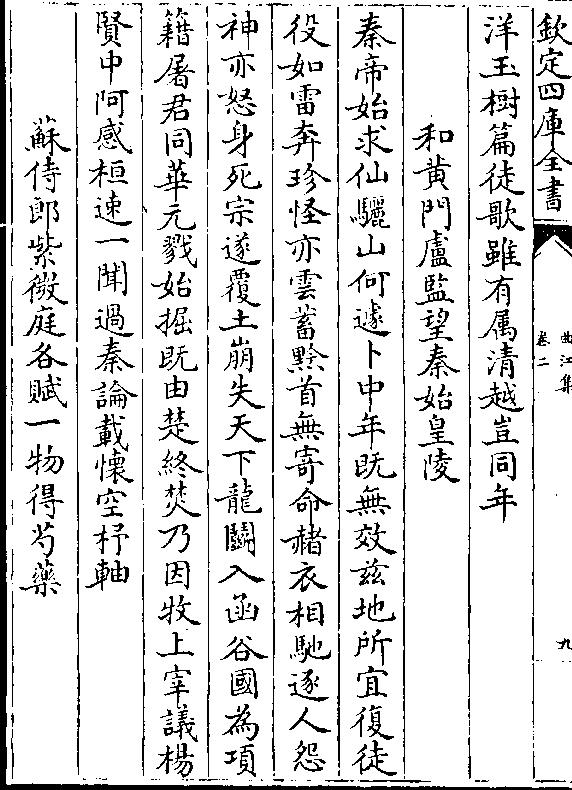 欽定四庫全書
曲江集
卷二
九
洋玉樹篇徒歌雖有属清越豈同年
和黄門盧監望秦始皇陵
秦帝始求仙驪山何遽卜中年既無效兹地所宜復徒
役如雷奔珍怪亦雲蓄黔首無寄命赭衣相馳逐人怨
神亦怒身死宗遂覆土崩失天下龍鬬入函谷國為項
籍屠君同華元戮始掘既由楚終焚乃因牧上宰議楊
賢中阿感桓速一聞過秦論載懷空杼軸
蘇侍郎紫微庭各賦一物得芍藥